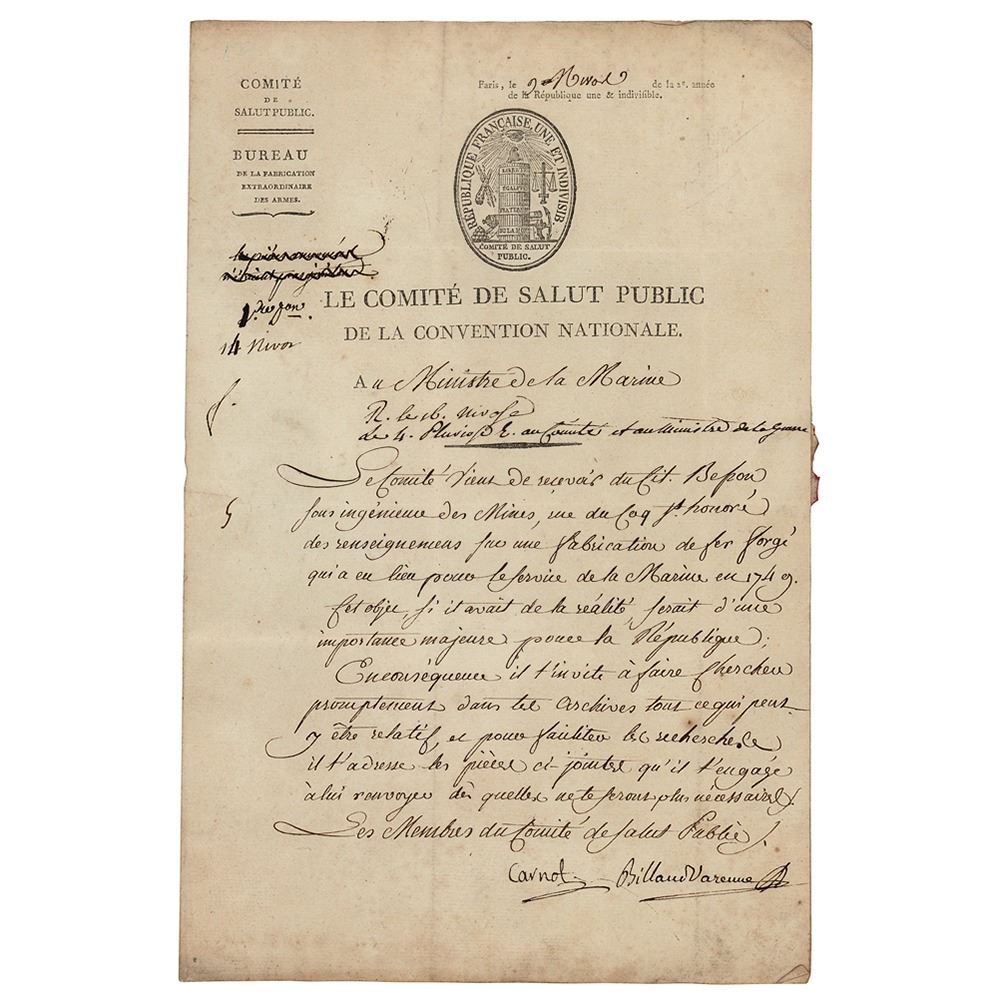 COMITÉ
DE
SALUT PUBLIC.
BUREAU
DE LA FABRICATION
EXTRAORDINAIRE
DES ARMES.
Paris, le 9 Nivose de la 2e. année
de la République une & indivisible.
RÉPUBLIQUE FRANÇAISE, UNE ET INDIVISIB.
LIBERTÉ
ÉGALITÉ
COMITÉ DE SALUT
PUBLIC.
14 Nivos
LE COMITÉ DE SALUT PUBLIC
DE LA CONVENTION NATIONALE.
Au Ministre de la Marine
R. le 16. nivose
Le 4. Pluviose E. au Comité et au Ministre de la Guerre
Le Comité vient de recevoir du Cit. Besson
sous ingénieur des Mines, rue du Coq St. honoré
des renseignemens sur une fabrication de fer forgé
qui a eu lieu pour le service de la Marine en 1749.
Cet objet, si il avait de la réalité serait d'une
importance majeure pour la République;
En conséquence il t'invite à faire chercher
promptement dans tes archives tout ce qui peut
y être relatif, et pour faciliter les recherches
il t'adresse les pièces ci-jointes qu'il t'engage
à lui renvoyer dès qu'elles ne te seront plus nécessaires.
Les Membres du Comité de Salut Public
Carnot Billaud Varenne